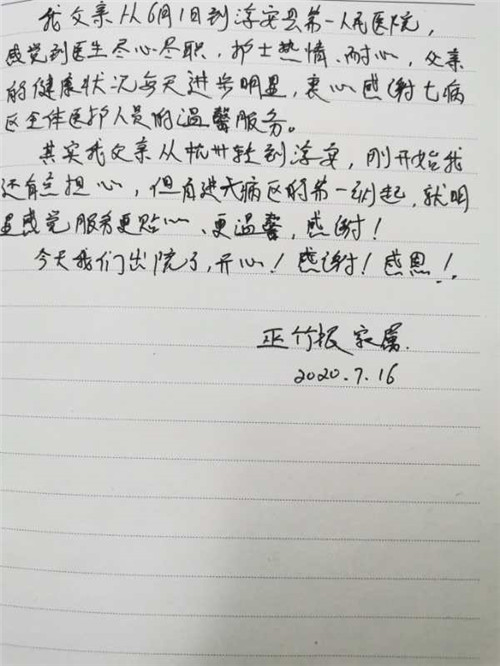 我父亲从6月1日到淳安县第一人民医院，
感觉到医生尽心尽职，护士热情、耐心，父亲
的健康状况每天进步明显，衷心感谢七病
区全体医护人员的温馨服务。
其实我父亲从杭州转到淳安，刚开始我
还有点担心，但自进七病区的第一刻起，就明
显感觉服务更贴心、更温馨，感谢！
今天我们出院了，开心！感谢！感恩！
巫竹根家属
2020.7.16